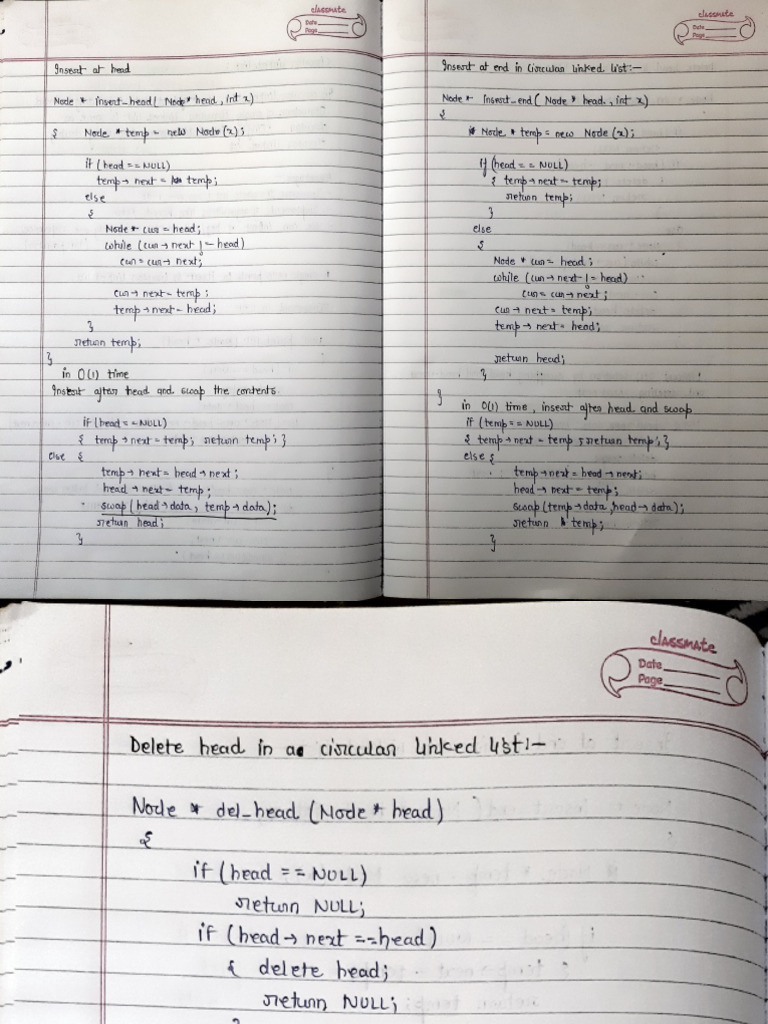 classmate
Date
Page
Insert at head
Node * insert_head( Node* head, int x)
{ Node * temp = new Node(x);
if (head == NULL)
temp→ next = temp;
else
{
Node* curr = head;
while (curr→ next != head)
curr = curr→ next;
curr→ next = temp;
temp→ next = head;
}
return temp;
}
in O(1) time
Insert after head and swap the contents
if (head == NULL)
{ temp→next = temp; return temp; }
else {
temp→ next = head→ next;
head→ next = temp;
swap (head→data, temp→data);
return head;
}
classmate
Date
Page
Insert at end in Circular linked list:-
Node* insert_end( Node * head, int x)
{
Node * temp = new Node (x);
if (head == NULL)
{ temp→next = temp;
return temp;
}
else
{
Node * curr = head;
while (curr→next != head)
curr = curr→next;
curr→ next = temp;
temp→ next = head;
return head;
}
}
in O(1) time, insert after head and swap
if (temp == NULL)
{ temp→next = temp; return temp; }
else {
temp→next = head→next;
head→ next = temp;
swap (temp→data, head→data);
return temp;
}
classmate
Date
Page
Delete head in a circular linked list:-
Node * del_head (Node * head)
{
if (head == NULL)
return NULL;
if (head→ next == head)
{ delete head;
return NULL;
}